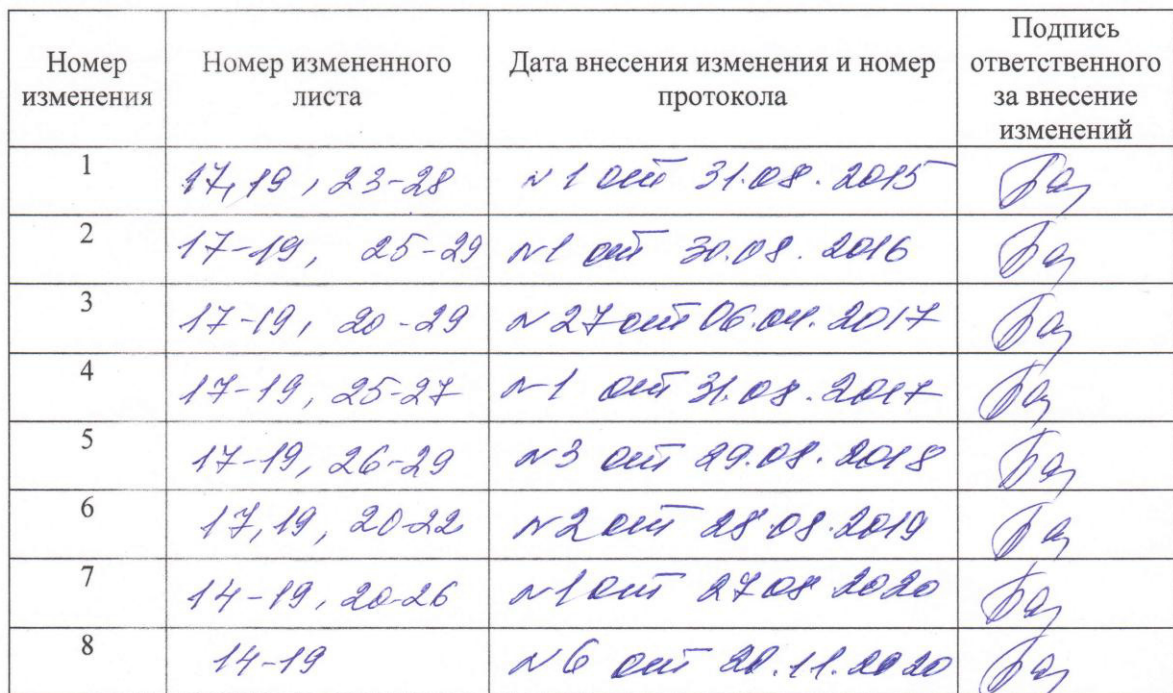 Номер изменения | Номер измененного листа | Дата внесения изменения и номер протокола | Подпись ответственного за внесение изменений
1 | 17,19, 23-28 | №1 от 31.08.2015
2 | 17-19, 25-29 | №1 от 30.08.2016
3 | 17-19, 20-29 | №27 от 06.04.2017
4 | 17-19, 25-27 | №1 от 31.08.2017
5 | 17-19, 26-29 | №3 от 29.08.2018
6 | 17,19, 20-22 | №2 от 28.08.2019
7 | 14-19, 20-26 | №1 от 27.08.2020
8 | 14-19 | №6 от 20.11.2020